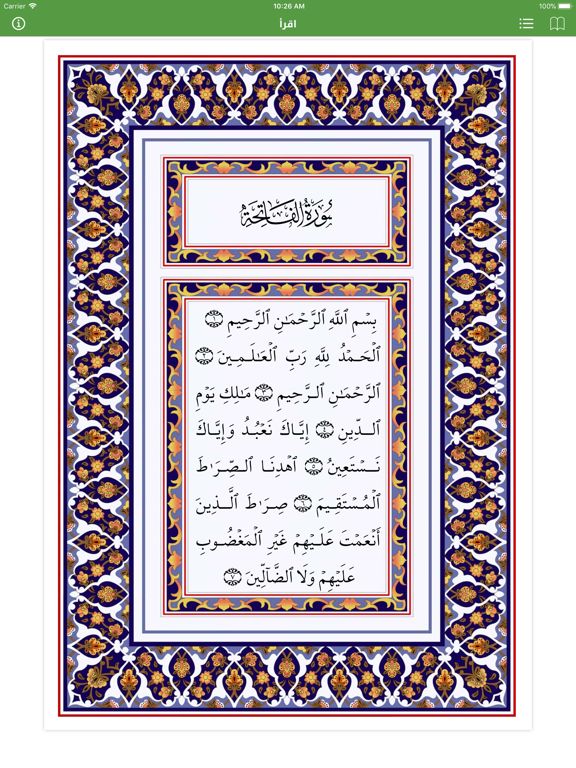 Carrier 10:26 AM 100%
اقرأ
سُورَةُ الفَاتِحَةِ
بِسْمِ ٱللَّهِ ٱلرَّحْمَـٰنِ ٱلرَّحِيمِ ١
ٱلْحَمْدُ لِلَّهِ رَبِّ ٱلْعَـٰلَمِينَ ٢
ٱلرَّحْمَـٰنِ ٱلرَّحِيمِ ٣ مَـٰلِكِ يَوْمِ
ٱلدِّينِ ٤ إِيَّاكَ نَعْبُدُ وَإِيَّاكَ
نَسْتَعِينُ ٥ ٱهْدِنَا ٱلصِّرَٰطَ
ٱلْمُسْتَقِيمَ ٦ صِرَٰطَ ٱلَّذِينَ
أَنْعَمْتَ عَلَيْهِمْ غَيْرِ ٱلْمَغْضُوبِ
عَلَيْهِمْ وَلَا ٱلضَّآلِّينَ ٧